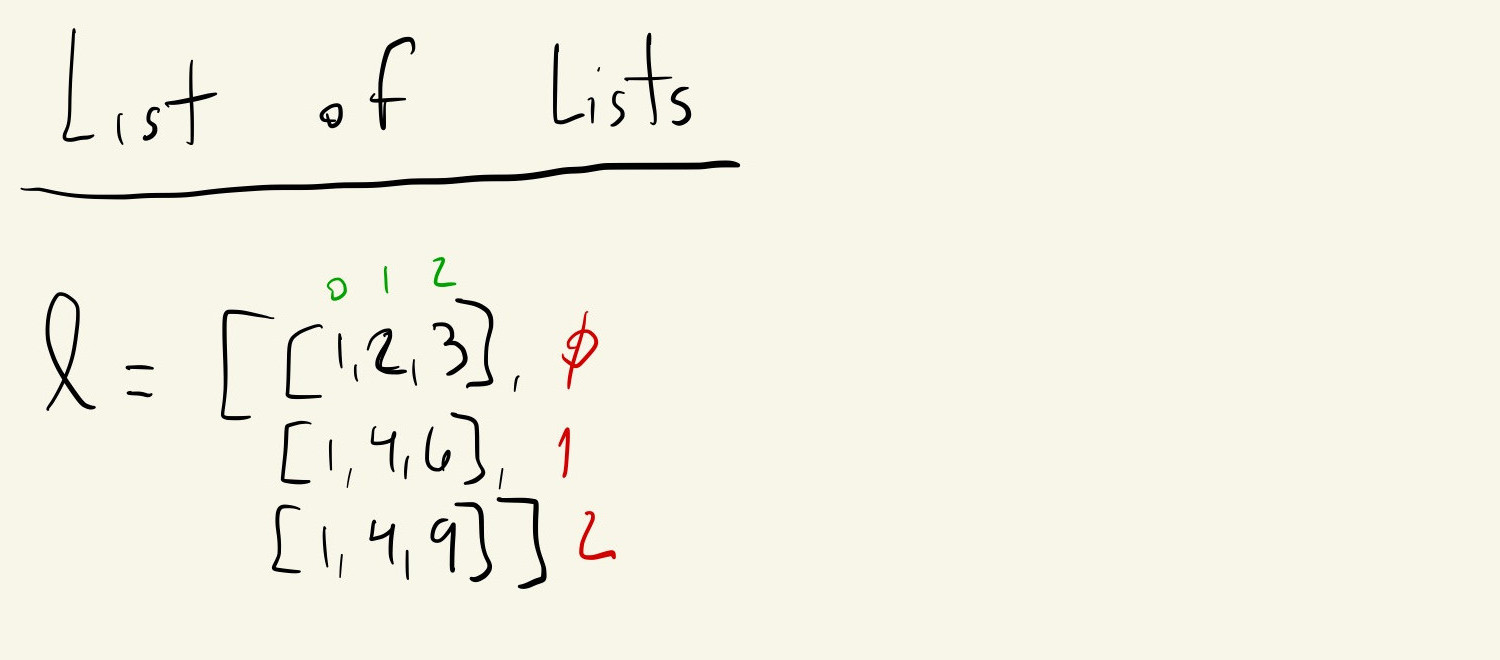 List of Lists
0 1 2
l = [[1,2,3], 0
[1,4,6], 1
[1,4,9]] 2